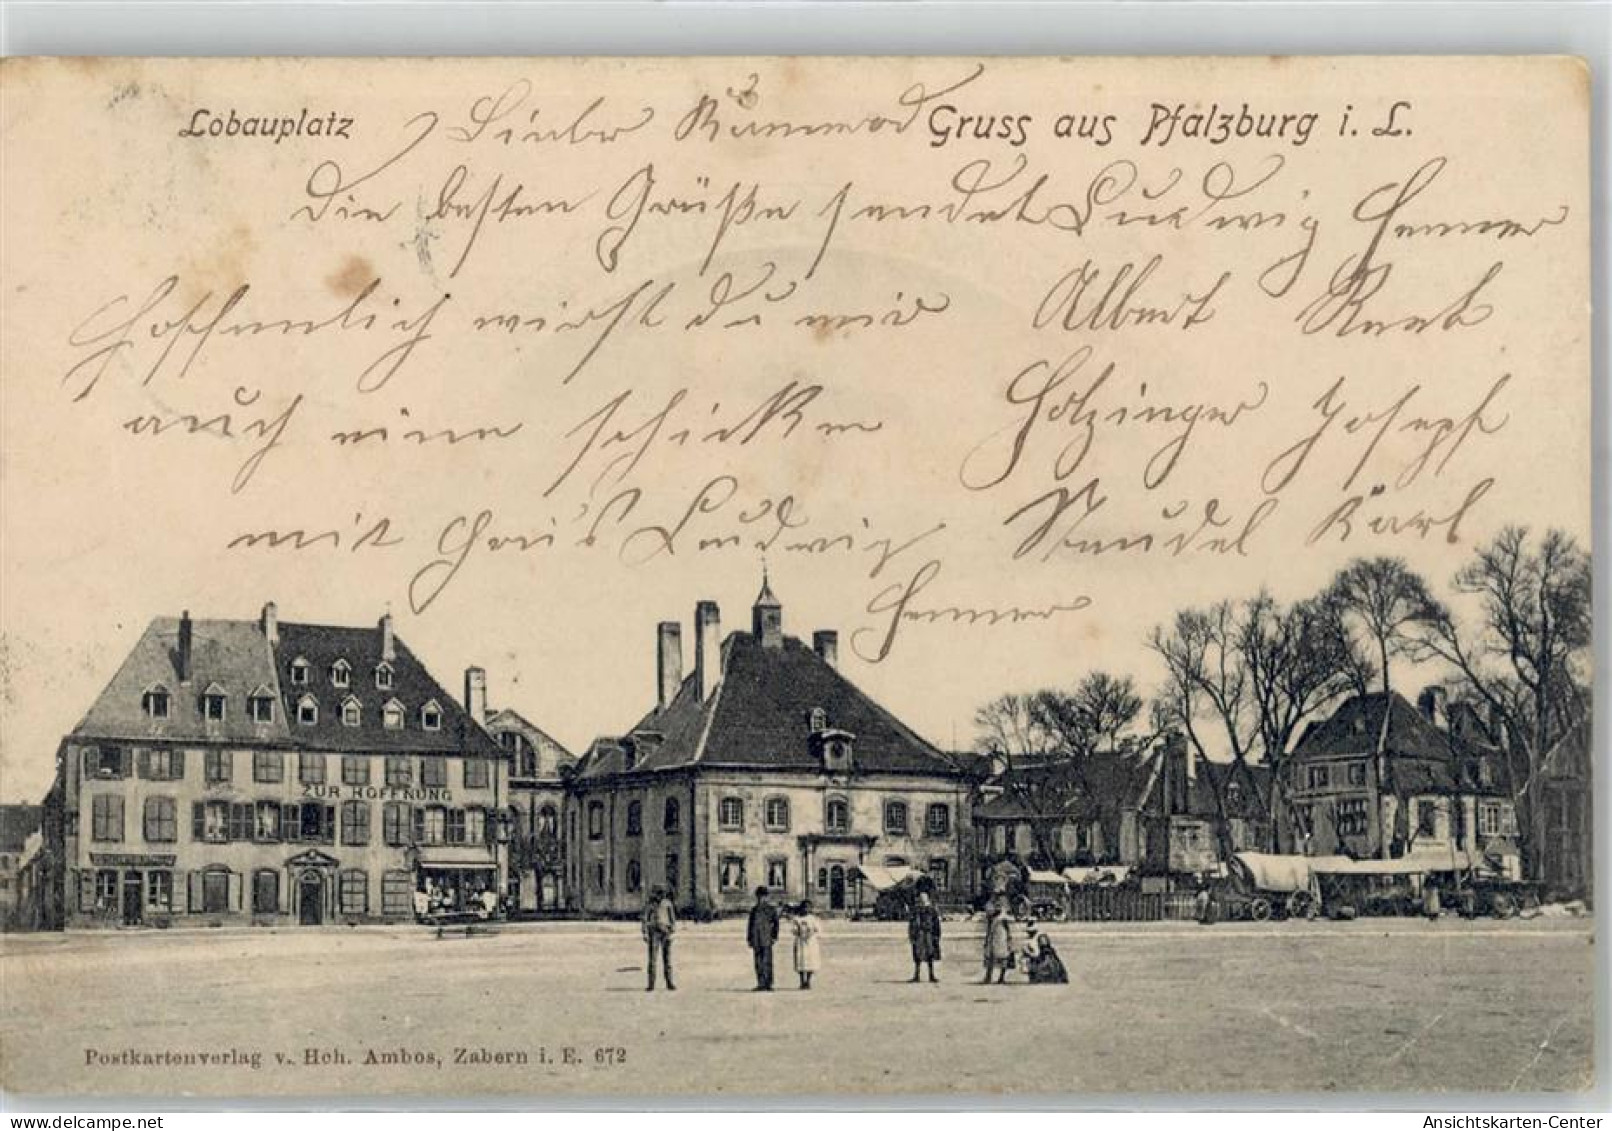 Lobauplatz
Gruss aus Pfalzburg i. L.
Lieber Kammerad
Die besten Grüße sendet Ludwig Hemmer
Hoffendlich wirst du mir
auch eine schicken
mit Gruß Ludwig
Hemmer
Albert
Holzinger Joseph
Staudel Karl
ZUR HOFFNUNG
Postkartenverlag v. Hch. Ambos, Zabern i. E. 672
www.delcampe.net
Ansichtskarten-Center